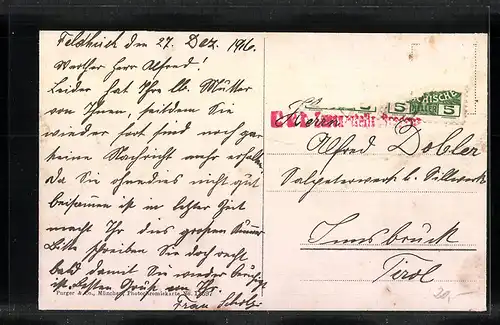 Feldkirch den 27. Dez. 1916.
Werther Herr Alfred!
Leider hat Ihre lb. Mutter
von Ihnen, seitdem Sie
wieder fort sind noch gar
keine Nachricht mehr erhalten
da Sie ohnedies nicht gut
beisammen ist in letzter Zeit
macht Ihr dies großen Kummer
Bitte schreiben Sie doch recht
bald damit Sie wieder beruhigt
ist. Besten Gruß von Ihr.
Frau
Purger & Co., München, Photochromiekarte No.
5 5
Herrn
Alfred Dobler
Salpeterwerk b. Sillwerk
Innsbruck
Tirol
20,-